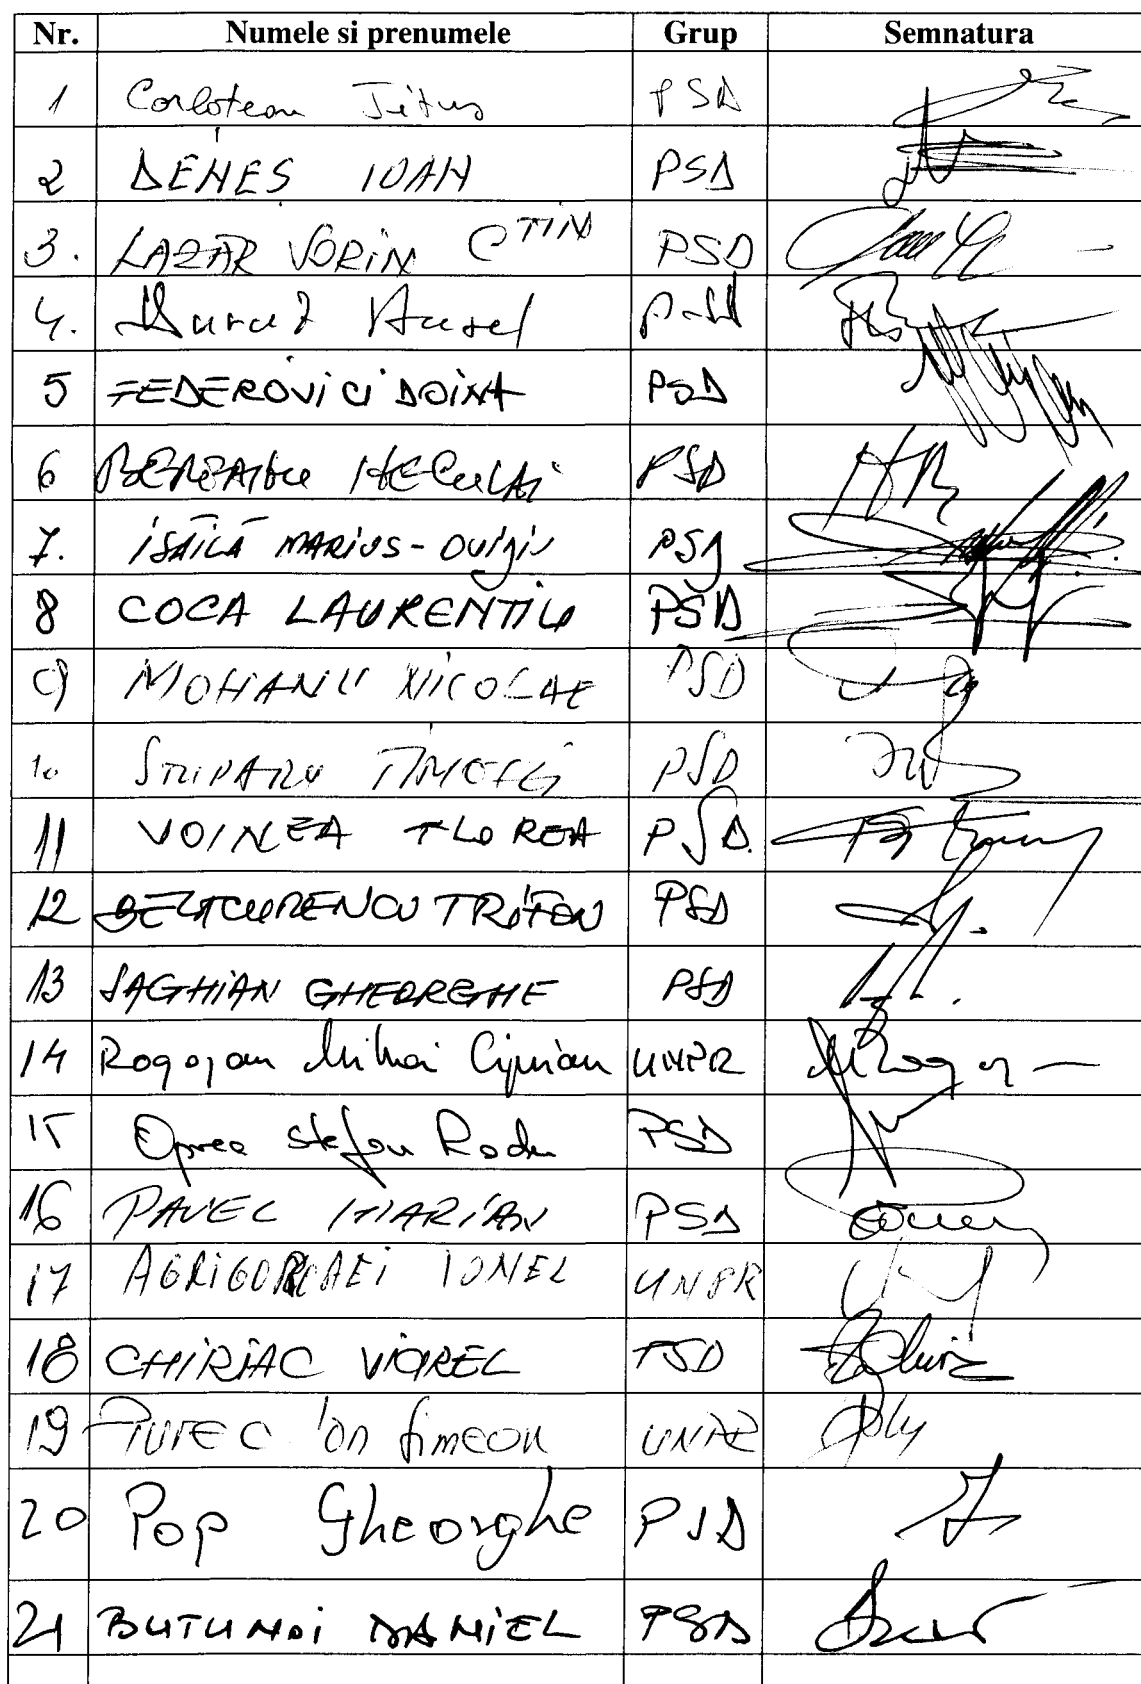 Nr. Numele si prenumele Grup Semnatura
1 Corlotean Titus PSD
2 DENES IOAN PSD
3. LAZĂR SORIN CTIN PSD
4. Aurel PSD
5 FEDEROVICI DOINA PSD
6 NECULAI PSD
7. ISĂILĂ MARIUS-OVIDIU PSD
8 COCA LAURENȚIU PSD
9 MOHANU NICOLAE PSD
10 STRIPARU TIMOTEI PSD
11 VOINEA FLOREA PSD.
12 BELACURENCU TRIFON PSD
13 SAGHIAN GHEORGHE PSD
14 Rogojan Mihai Ciprian UNPR
15 Oprea Stefan Radu PSD
16 PAVEL MARIAN PSD
17 AGRIGOROAEI IONEL UNPR
18 CHIRIAC VIOREL PSD
19 Ion Simeon UNPR
20 Pop Gheorghe PSD
21 BUTUNOI DANIEL PSD